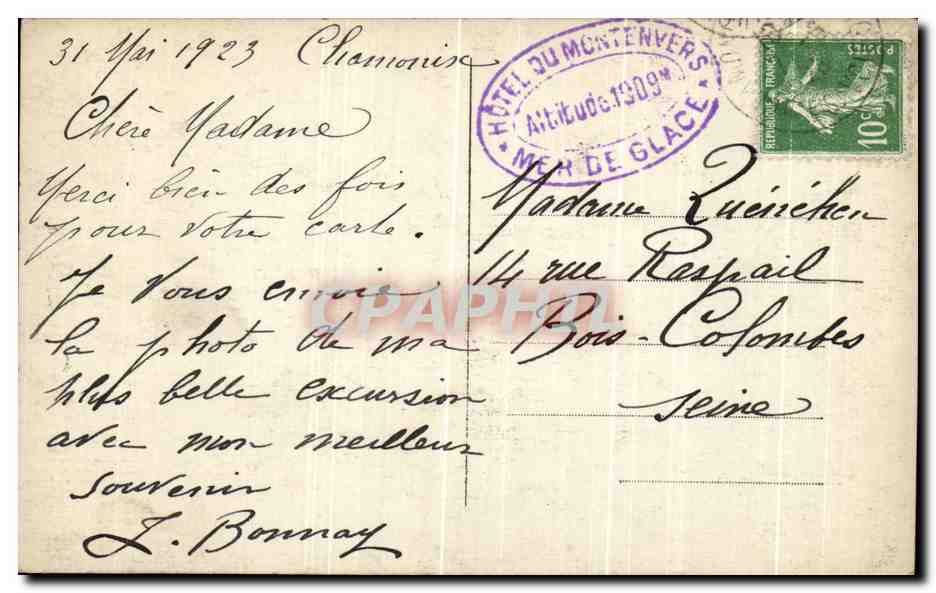 31 Mai 1923 Chamonix
Chère Madame
Merci bien des fois
pour votre carte.
Je vous envoie
la photo de ma
plus belle excursion
avec mon meilleur
souvenir
J. Bonnay
HÔTEL DU MONTENVERS
Altitude 1909 M
MER DE GLACE
REPUBLIQUE FRANÇAISE
POSTES
10c
Madame
14 rue Raspail
Bois-Colombes
Seine
CPAPHIL